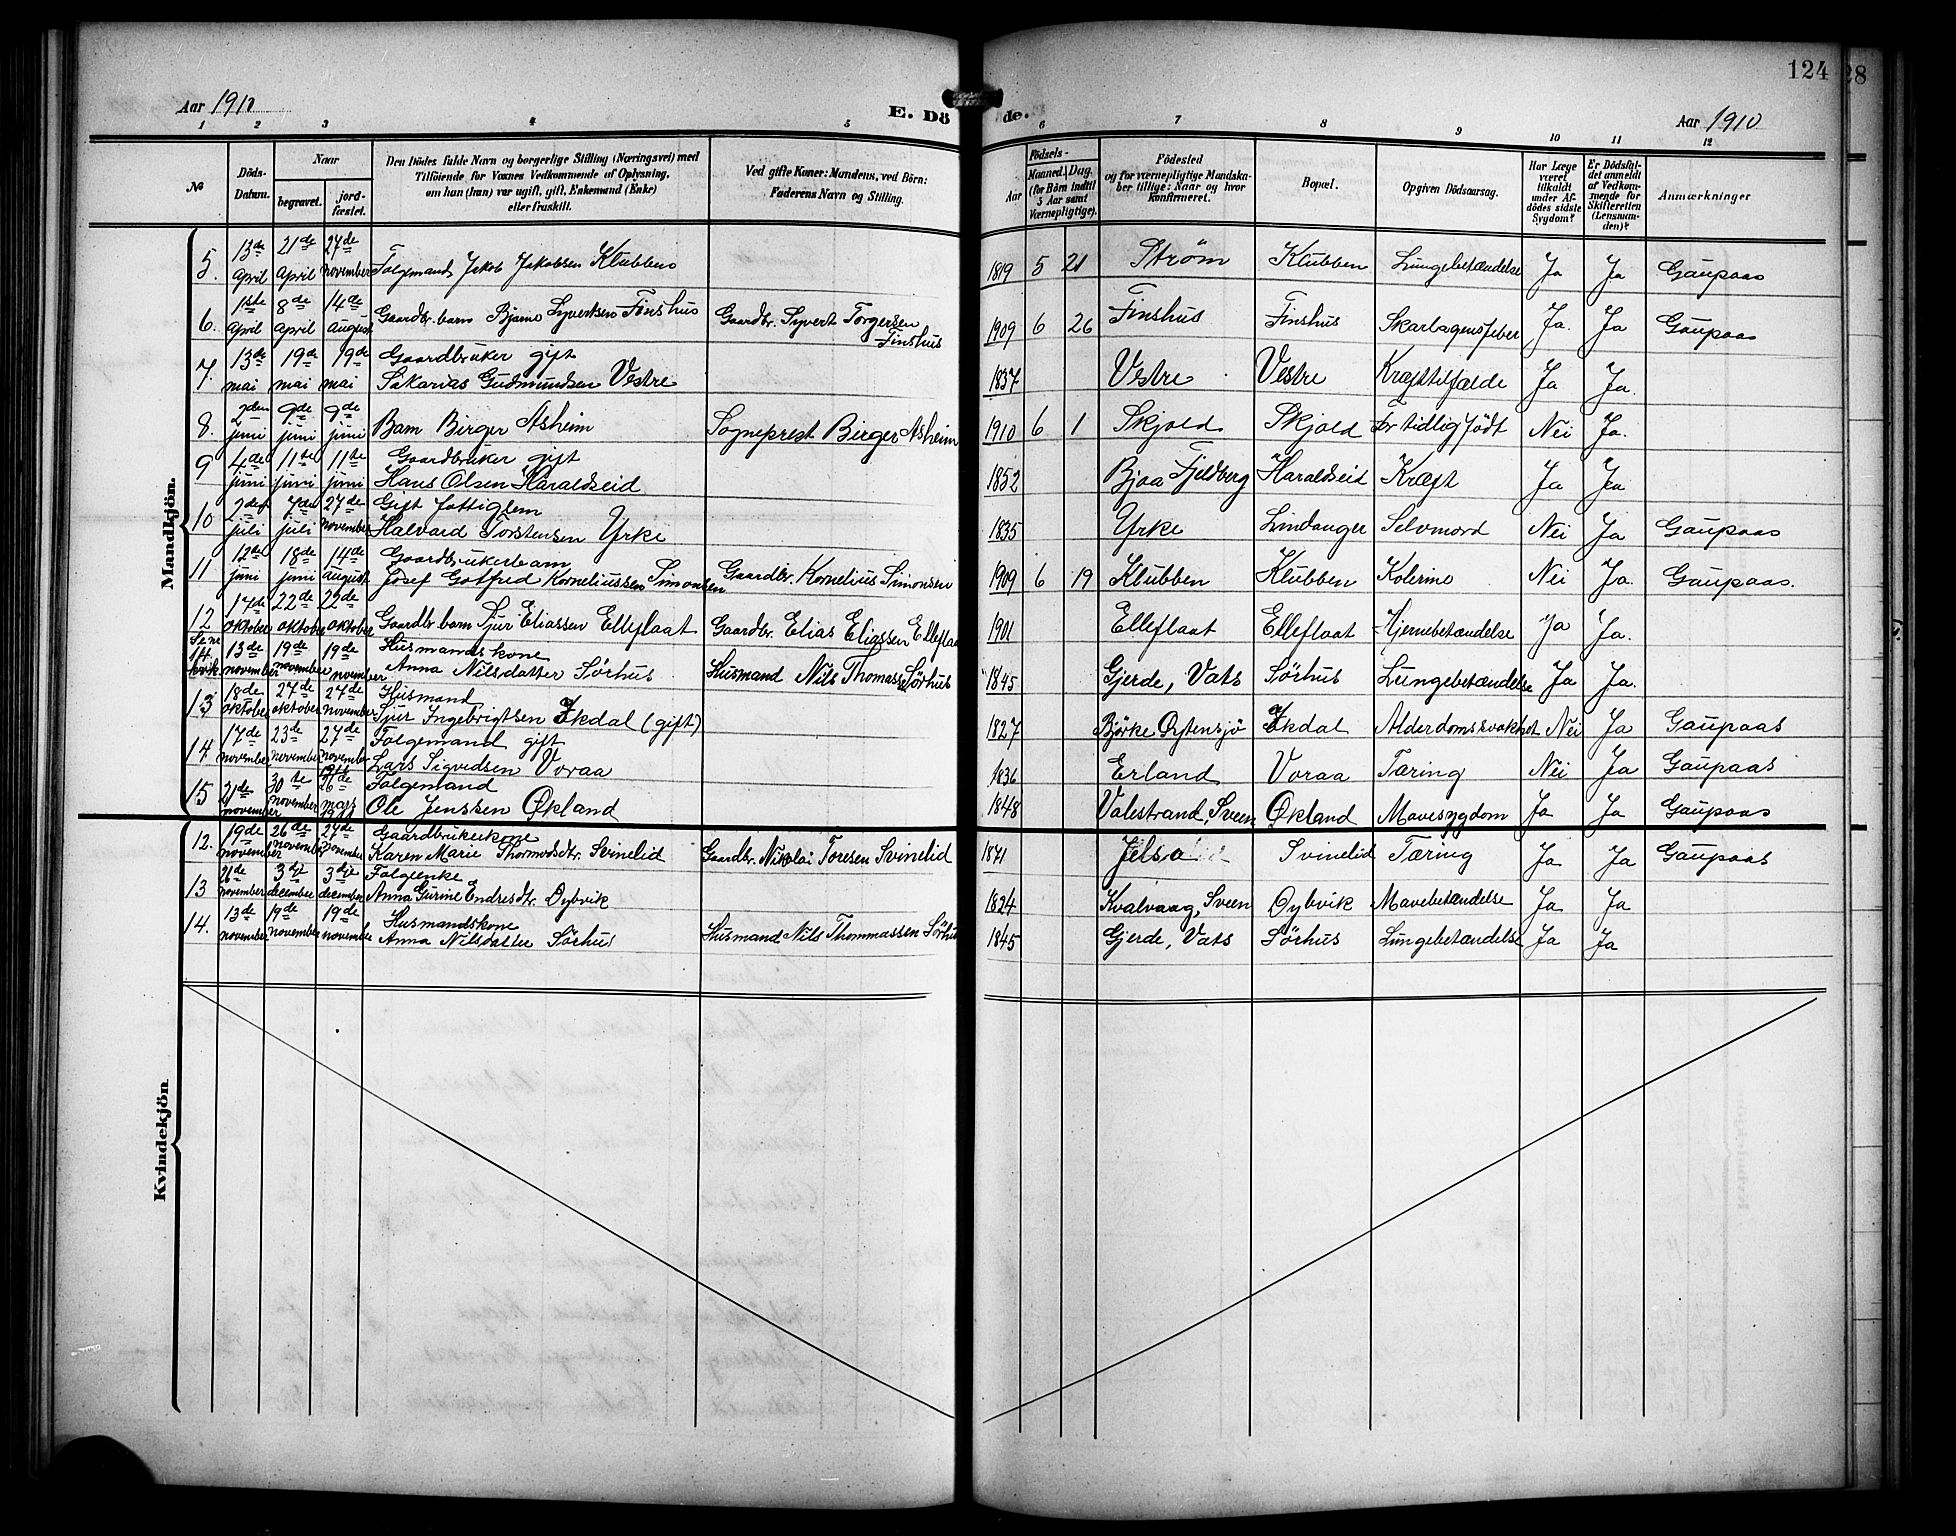 124 28
Aar 1910
E. Dö de.
Aar 1910
1 2 3 4 5 6 7 8 9 10 11 12
№
Döds-Datum.
Naar
begravet.
jord-fæstet.
Den Dödes fulde Navn og borgerlige Stilling (Næringsvei) med
Tilföiende for Voxnes Vedkommende af Oplysning,
om han (hun) var ugift, gift, Enkemand (Enke)
eller fraskilt.
Ved gifte Koner: Mandens, ved Börn:
Faderens Navn og Stilling.
Födsels-
Aar
Maaned. Dag.
(for Börn indtil
5 Aar samt
Værnepligtige).
Födested
og for værnepligtige Mandska-
ber tillige: Naar og hvor
konfirmeret.
Bopæl.
Opgiven Dödsaarsag.
Har Læge
været
tilkaldt
under Af-
dödes sidste
Sygdom?
Er Dödsfal-
det anmeldt
af Vedkom-
mende for
Skifteretten
(Lensman-
den)?
Anmærkninger
Mandkjön.
5. 13de April 21de April 27de november Folgemand Jakob Jakobsen Klubben 1819 5 21 Strøm Klubben Lungebetændelse Ja Ja Gaupaas
6. 1ste April 8de April 14de August Gaardbr. barn Bjarne Syvertsen Finshus Gaardbr. Syvert Torgersen Finshus 1909 6 26 Finshus Finshus Skarlagensfeber Ja. Ja Gaupaas
7. 13de mai 19de mai 19de mai Gaardbruker gift
Sakarias Gudmundsen Vestre 1837 Vestre Vestre Kræfttilfælde Ja Ja.
8. 2den juni 9de juni 9de juni Barn Birger Asheim Sogneprest Birger Asheim 1910 6 1 Skjold Skjold For tidlig født Nei Ja.
9 4de juni 11te juni 11te juni Gaardbruker gift
Hans Olsen Haraldseid 1852 Bjoa Fjeldberg Haraldseid Kræft Ja Ja
10 2den juli 7de juli 27de november Gift fattiglem
Halvard Torstensen Yrke 1835 Yrke Lindanger Selvmord Nei Ja Gaupaas
11 12de juni 18de juni 14de August Gaardbrukerbarn
Josef Gotfred Korneliussen Simonsen Gaardbr. Kornelius Simonsen 1909 6 19 Klubben Klubben Kolerine Nei Ja. Gaupaas.
12 17de oktober 22de oktober 22de oktober Gaardbr. barn Sjur Eliassen Elleflaat Gaardbr. Elias Eliassen Elleflaat 1901 Elleflaat Elleflaat Hjernebetændelse Ja Ja.
Se nr. 14. kvik. 13de november 19de november 19de november Husmandskone
Anna Nilsdatter Sørhus Husmand Nils Thomass. Sørhus 1845 Gjerde, Vats Sørhus Lungebetændelse Ja Ja.
13 18de oktober 24de oktober 27de november Husmand
Sjur Ingebrigtsen Økdal (gift) 1827 Bjørke Ølensjø Økdal Alderdomssvakhet Nei Ja Gaupaas
14 17de november 23de november 27de november Folgemand gift
Lars Sigvedsen Voraa 1836 Erland Voraa Tæring Nei Ja Gaupaas
15 21de november 30te november 26de mars 1911 Folgemand
Ole Jenssen Økland 1848 Valestrand, Sveen Økland Mavesygdom Ja Ja Gaupaas
Kvindekjön.
12. 19de november 26de november 27de november Gaardbrukerkone
Karen Marie Thormodsdtr. Svinelid Gaardbr. Nikolai Toresen Svinelid 1841 Jelsa Svinelid Tæring Ja Ja Gaupaas
13 26de november 3dje december 3dje december Folgeenke
Anna Gurine Endresdtr. Dybvik 1824 Kvalvaag, Sveen Dybvik Mavebetændelse Ja Ja
14. 13de november 19de november 19de november Husmandskone
Anna Nilsdatter Sørhus Husmand Nils Thommassen Sørhus 1845 Gjerde, Vats Sørhus Lungebetændelse Ja Ja